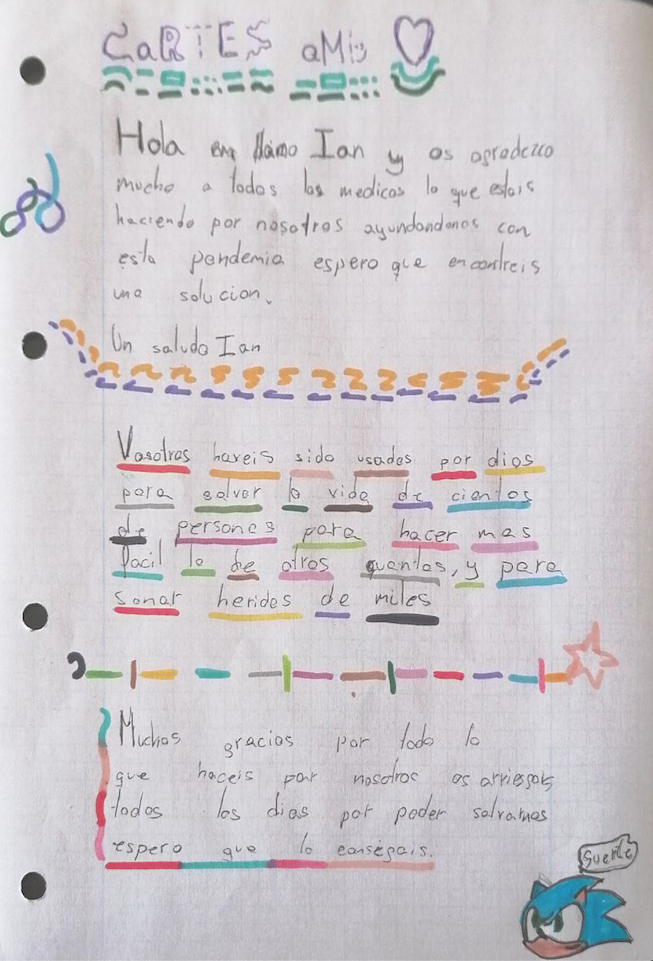 CaRTES aMiS
Hola em llamo Ian y os agradezco
mucho a todos los medicos lo que estais
haciendo por nosotros ayundandonos con
esta pandemia espero que encontreis
una solucion.
Un saludo Ian
Vosotros haveis sido usados por dios
para salvar la vida de cientos
de persones para hacer mas
facil la de otros quantos, y para
sanar heridas de miles
Muchas gracias por todo lo
que haceis por nosotros os arriesgais
todos los dias por poder salvarnos
espero que lo consegais.
Suerte